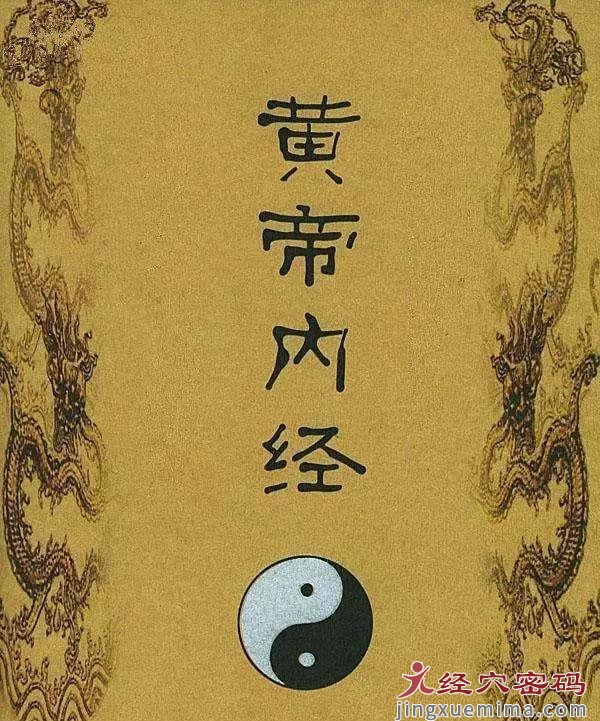 黄帝内经
经穴密码
jingxuemima.com